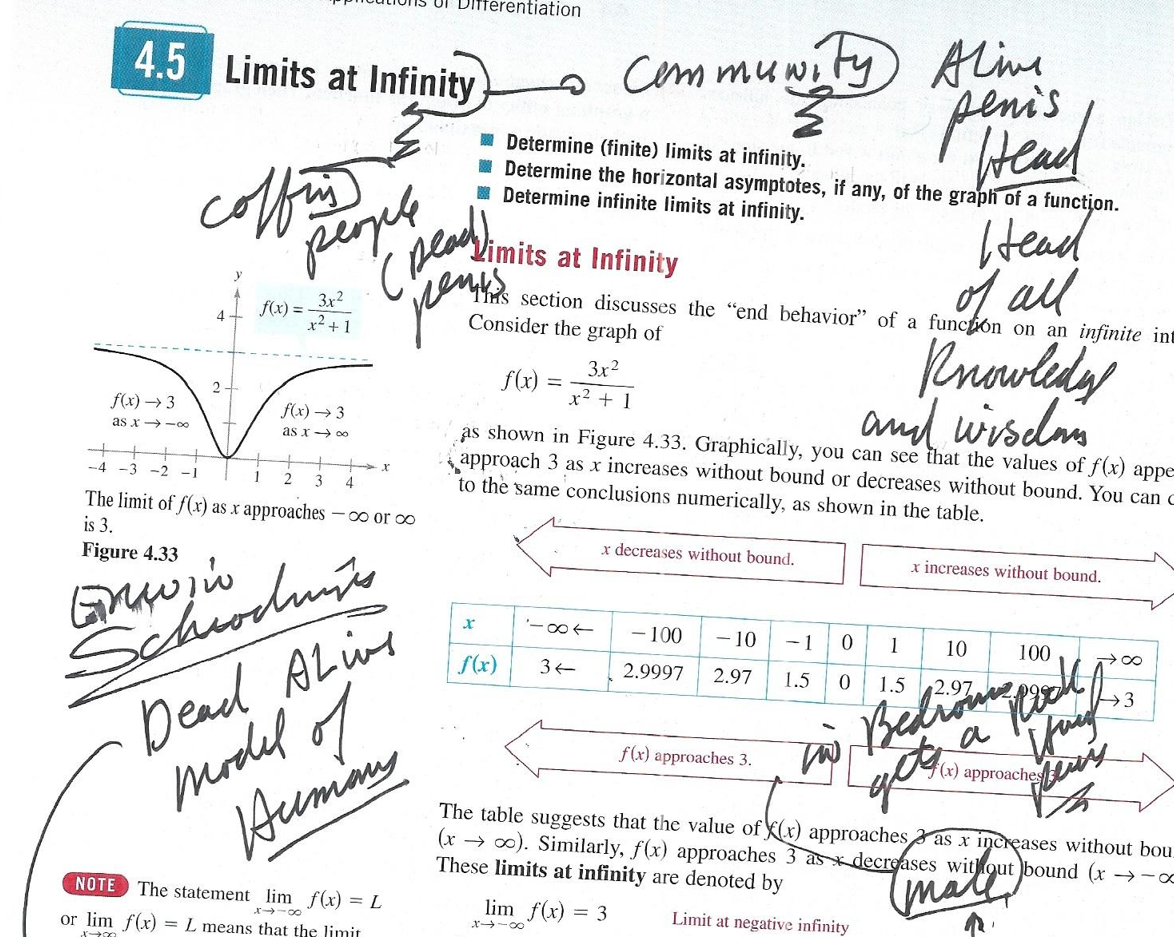 Applications of Differentiation
4.5 Limits at Infinity
Community
Alive
penis
Head
■ Determine (finite) limits at infinity.
■ Determine the horizontal asymptotes, if any, of the graph of a function.
■ Determine infinite limits at infinity.
coffin
people
(Dead)
penis
Head
of all
Knowledge
and wisdom
Limits at Infinity
This section discusses the “end behavior” of a function on an infinite int
Consider the graph of
f(x) = 3x² / x² + 1
as shown in Figure 4.33. Graphically, you can see that the values of f(x) appe
approach 3 as x increases without bound or decreases without bound. You can c
to the same conclusions numerically, as shown in the table.
y
4
f(x) = 3x² / x² + 1
2
f(x) → 3
as x → −∞
f(x) → 3
as x → ∞
−4 −3 −2 −1 1 2 3 4 x
The limit of f(x) as x approaches −∞ or ∞
is 3.
Figure 4.33
Dead Alive
Model of
Humans
x decreases without bound.
x increases without bound.
x −∞← −100 −10 −1 0 1 10 100 →∞
f(x) 3← 2.9997 2.97 1.5 0 1.5 2.97 2.9997 →3
f(x) approaches 3.
f(x) approaches 3.
in Bedroom
gets a Rock
Hard
penis
male
The table suggests that the value of f(x) approaches 3 as x increases without bou
(x → ∞). Similarly, f(x) approaches 3 as x decreases without bound (x → −∞
These limits at infinity are denoted by
lim f(x) = 3 Limit at negative infinity
x→−∞
NOTE The statement lim f(x) = L
x→−∞
or lim f(x) = L means that the limit
x→∞